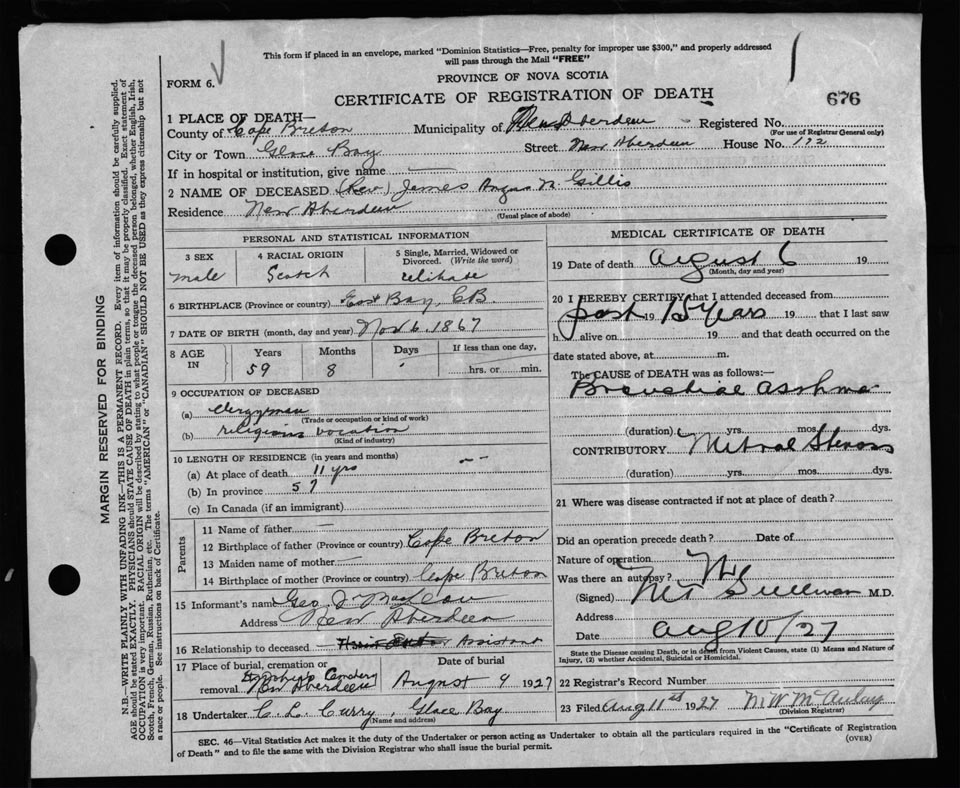 This form if placed in an envelope, marked "Dominion Statistics—Free, penalty for improper use $300," and properly addressed
will pass through the Mail "FREE"
FORM 6.
PROVINCE OF NOVA SCOTIA
CERTIFICATE OF REGISTRATION OF DEATH
676
1 PLACE OF DEATH—
County of Cape Breton Municipality of New Aberdeen Registered No.
(For use of Registrar General only)
City or Town Glace Bay Street New Aberdeen House No. 192
If in hospital or institution, give name
2 NAME OF DECEASED (Rev.) James Angus N. Gillis
Residence New Aberdeen
(Usual place of abode)
PERSONAL AND STATISTICAL INFORMATION
3 SEX 4 RACIAL ORIGIN 5 Single, Married, Widowed or Divorced. (Write the word)
male Scotch celibate
6 BIRTHPLACE (Province or country) East Bay, C.B.
7 DATE OF BIRTH (month, day and year) Nov. 6. 1867
8 AGE IN Years Months Days If less than one day,
59 8 hrs. or min.
9 OCCUPATION OF DECEASED
(a) clergyman
(Trade or occupation or kind of work)
(b) religious vocation
(Kind of industry)
10 LENGTH OF RESIDENCE (in years and months)
(a) At place of death 11 yrs
(b) In province 59
(c) In Canada (if an immigrant)
Parents
11 Name of father
12 Birthplace of father (Province or country) Cape Breton
13 Maiden name of mother
14 Birthplace of mother (Province or country) Cape Breton
15 Informant's name Geo. J. MacLean
Address New Aberdeen
16 Relationship to deceased Assistant
17 Place of burial, cremation or removal. Cemetery New Aberdeen
Date of burial August 9 1927
18 Undertaker C. L. Curry, Glace Bay
(Name and address)
MEDICAL CERTIFICATE OF DEATH
19 Date of death August 6 19
(Month, day and year)
20 I HEREBY CERTIFY that I attended deceased from
past 19 15 years 19 that I last saw
h alive on 19 and that death occurred on the
date stated above, at m.
The CAUSE OF DEATH was as follows:—
Bronchial Asthma
(duration) yrs. mos. dys.
CONTRIBUTORY Mitral Stenosis
(duration) yrs. mos. dys.
21 Where was disease contracted if not at place of death?
Did an operation precede death? Date of
Nature of operation
Was there an autopsy? No
(Signed) Sullivan M.D.
Address
Date Aug 10/27
State the Disease causing Death, or in death from Violent Causes, state (1) Means and Nature of
Injury, (2) whether Accidental, Suicidal or Homicidal.
22 Registrar's Record Number
23 Filed Aug 11 1927
(Division Registrar)
SEC. 46—Vital Statistics Act makes it the duty of the Undertaker or person acting as Undertaker to obtain all the particulars required in the "Certificate of Registration
of Death" and to file the same with the Division Registrar who shall issue the burial permit.
(OVER)
MARGIN RESERVED FOR BINDING
N.B.—WRITE PLAINLY WITH UNFADING INK—THIS IS A PERMANENT RECORD. Every item of information should be carefully supplied.
AGE should be stated EXACTLY. PHYSICIANS should STATE CAUSE OF DEATH in plain terms, so that it may be properly classified. Exact statement of
OCCUPATION is very important. RACIAL ORIGIN will be described by stating to what people or tongue the deceased person belonged, whether English, Irish,
Scotch, French, German, Russian, Ruthenian, etc. The terms "AMERICAN" or "CANADIAN" SHOULD NOT BE USED as they express citizenship but not
a race or people. See instructions on back of Certificate.